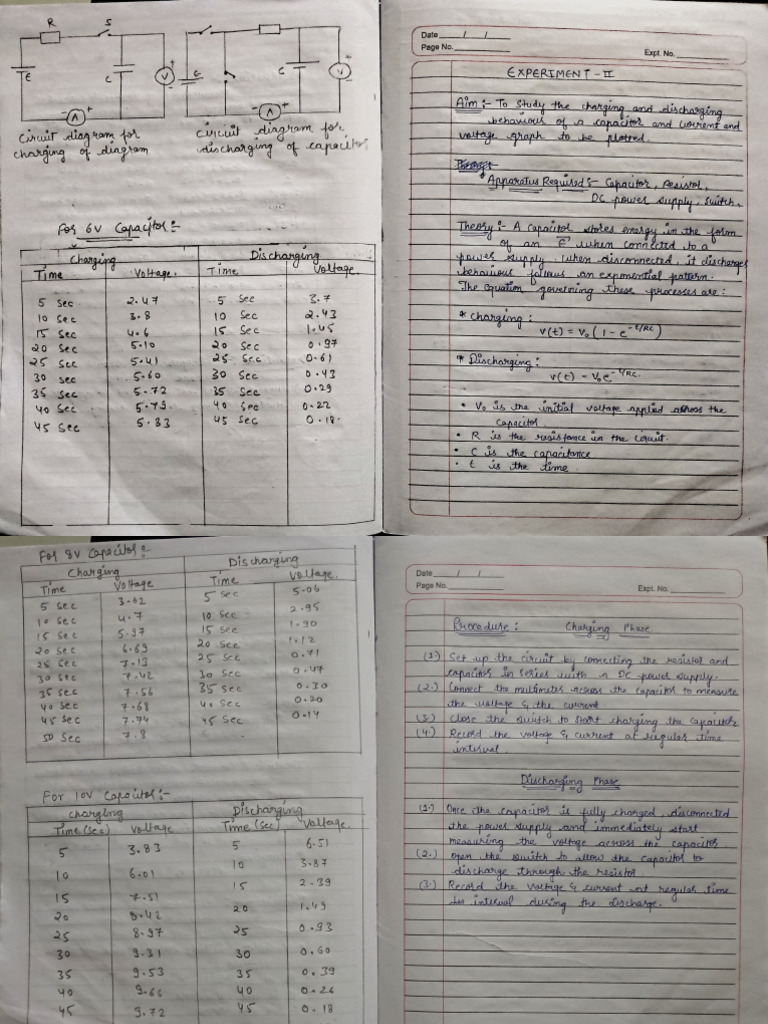 R S
E C V A
E C V A
Circuit diagram for
charging of diagram
Circuit diagram for
discharging of capacitor
For 6V Capacitor:-
Charging Discharging
Time Voltage. Time Voltage
5 Sec 2.47 5 Sec 3.7
10 Sec 3.8 10 Sec 2.43
15 Sec 4.6 15 Sec 1.45
20 Sec 5.10 20 Sec 0.97
25 Sec 5.41 25 Sec 0.61
30 Sec 5.60 30 Sec 0.43
35 Sec 5.72 35 Sec 0.29
40 Sec 5.79 40 Sec 0.22
45 Sec 5.83 45 Sec 0.18
Date / /
Page No. Expt. No.
EXPERIMENT - II
Aim:- To study the charging and discharging
behaviour of a capacitor and current and
voltage graph to be plotted.
Theory:-
Apparatus Required:- Capacitor, resistor,
DC power supply, switch.
Theory:- A capacitor stores energy in the form
of an E when connected to a
power supply. When disconnected, it discharges
behaviour follows an exponential pattern.
The equation governing these processes are:
* Charging:
v(t) = V₀ (1 - e^-t/RC)
* Discharging:
v(t) = V₀e^-t/RC.
• V₀ is the initial voltage applied across the
capacitor
• R is the resistance in the circuit.
• C is the capacitance
• t is the time
For 8V Capacitor:-
Charging Discharging
Time Voltage Time Voltage.
5 Sec 3.02 5 Sec 5.06
10 Sec 4.7 10 Sec 2.95
15 Sec 5.97 15 Sec 1.90
20 Sec 6.69 20 Sec 1.12
25 Sec 7.13 25 Sec 0.71
30 Sec 7.42 30 Sec 0.47
35 Sec 7.56 35 Sec 0.30
40 Sec 7.68 40 Sec 0.20
45 Sec 7.74 45 Sec 0.14
50 Sec 7.8
For 10V Capacitor:-
Charging Discharging
Time (Sec) Voltage Time (Sec) Voltage
5 3.83 5 6.51
10 6.01 10 3.87
15 7.51 15 2.39
20 8.42 20 1.49
25 8.97 25 0.93
30 9.31 30 0.60
35 9.53 35 0.39
40 9.66 40 0.26
45 9.72 45 0.18
Date / /
Page No. Expt. No.
Procedure: Charging Phase
(1.) Set up the circuit by connecting the resistor and
capacitor in series with a DC power supply.
(2.) Connect the multimeter across the capacitor to measure
the voltage & the current
(3.) Close the switch to start charging the capacitor
(4.) Record the voltage & current at regular time
interval.
Discharging Phase
(1.) Once the capacitor is fully charged, disconnected
the power supply and immediately start
measuring the voltage across the capacitor
(2.) Open the switch to allow the capacitor to
discharge through the resistor
(3.) Record the voltage & current at regular time
interval during the discharge.